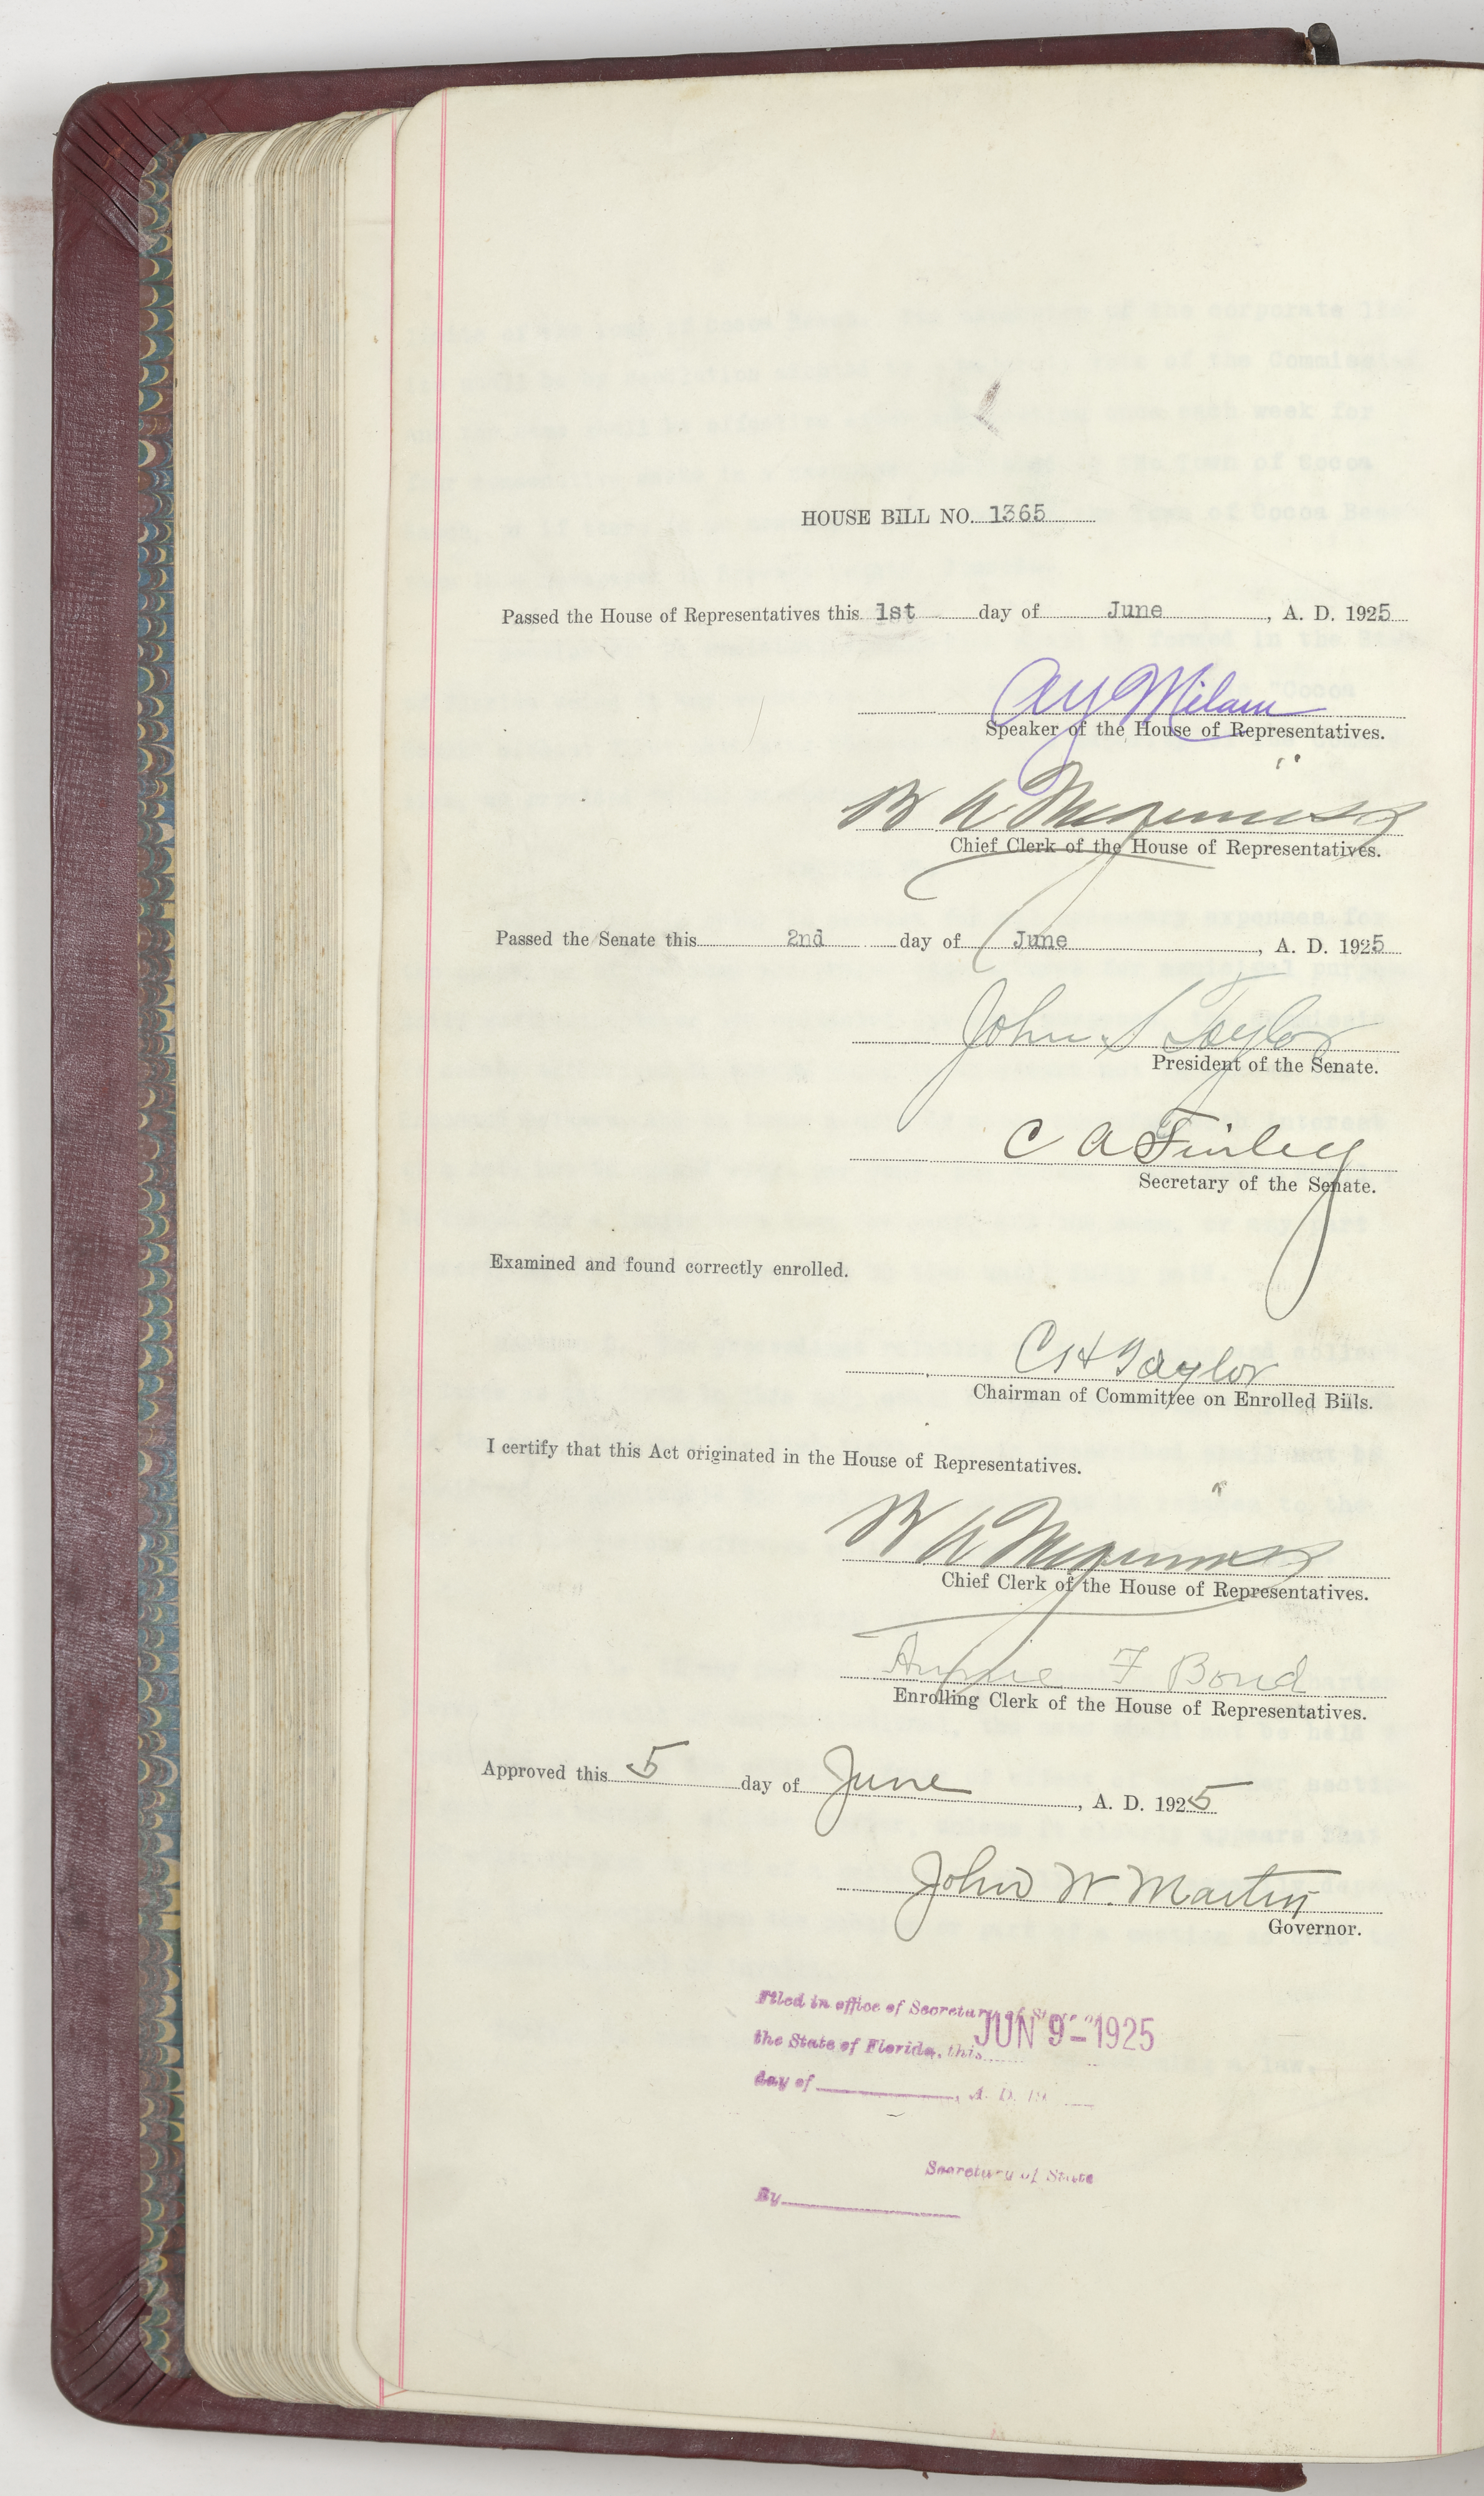 HOUSE BILL NO. 1365
Passed the House of Representatives this 1st day of June, A. D. 1925
A Y Milam
Speaker of the House of Representatives.
B A
Chief Clerk of the House of Representatives.
Passed the Senate this 2nd day of June, A. D. 1925
John S Taylor
President of the Senate.
C A Finley
Secretary of the Senate.
Examined and found correctly enrolled.
C H Taylor
Chairman of Committee on Enrolled Bills.
I certify that this Act originated in the House of Representatives.
B A
Chief Clerk of the House of Representatives.
F Bond
Enrolling Clerk of the House of Representatives.
Approved this 5 day of June, A. D. 1925
John W. Martin
Governor.
Filed in office of Secretary of
the State of Florida, this JUN 9-1925
day of , A. D. 19
Secretary of State
By